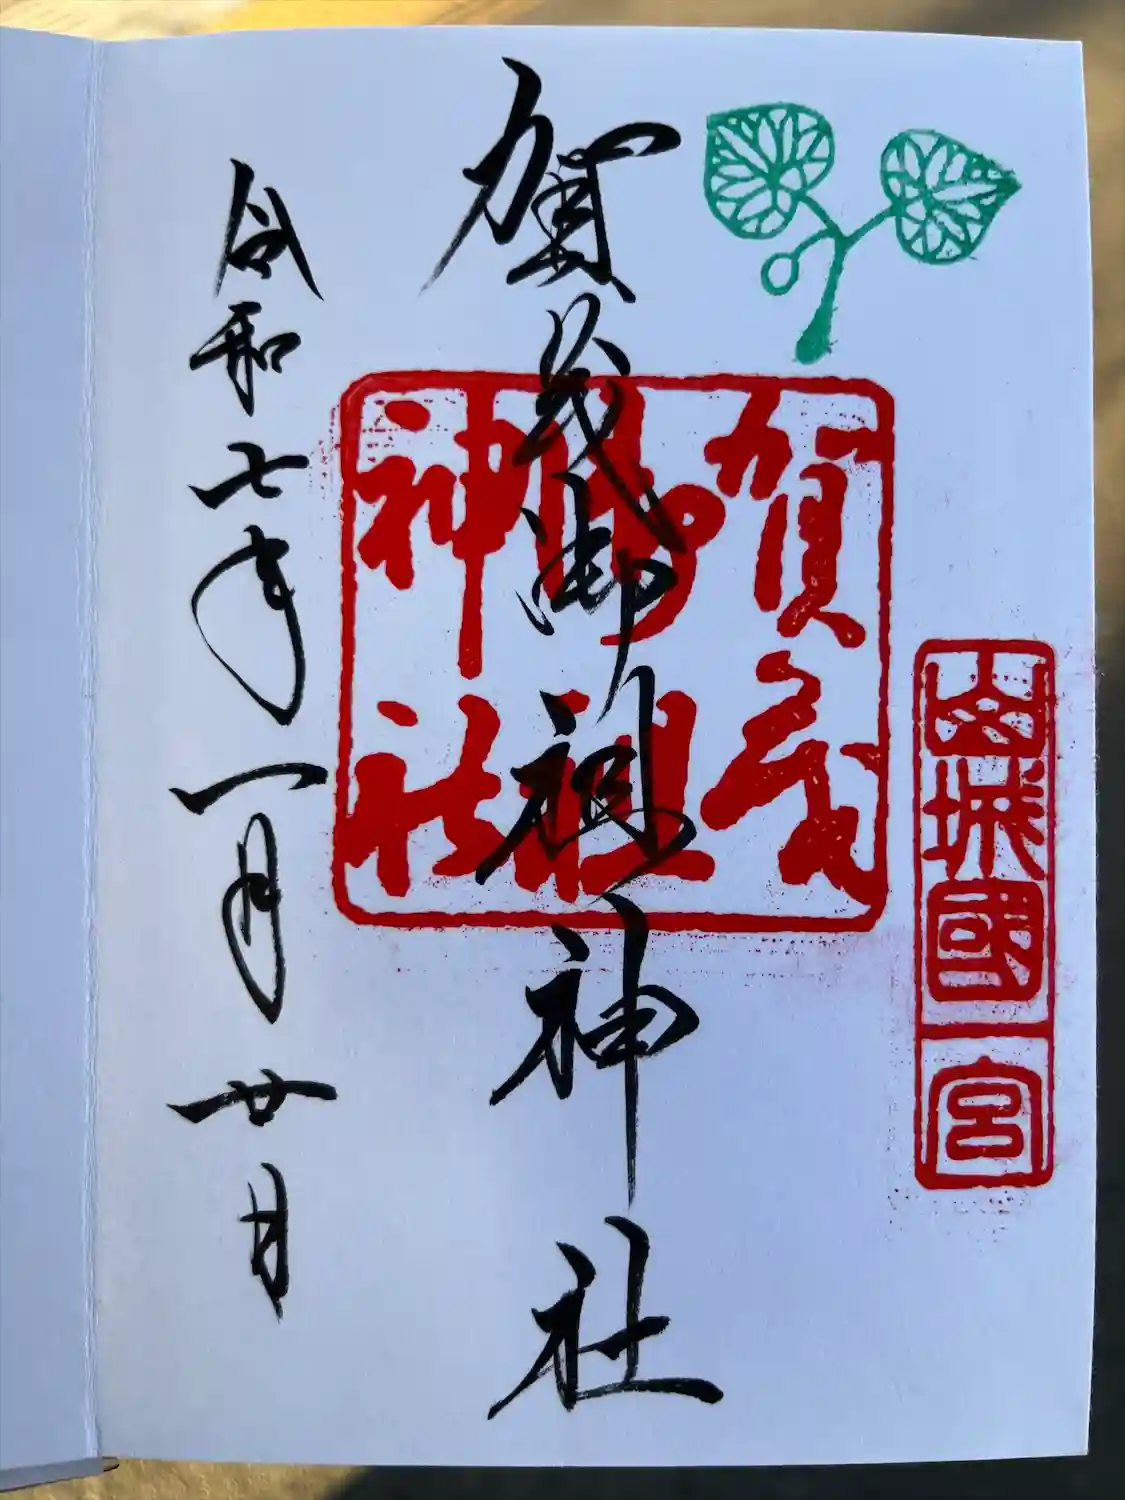 山城國一宮
賀茂御祖神社
賀茂
御祖
神社
令和七年一月廿日